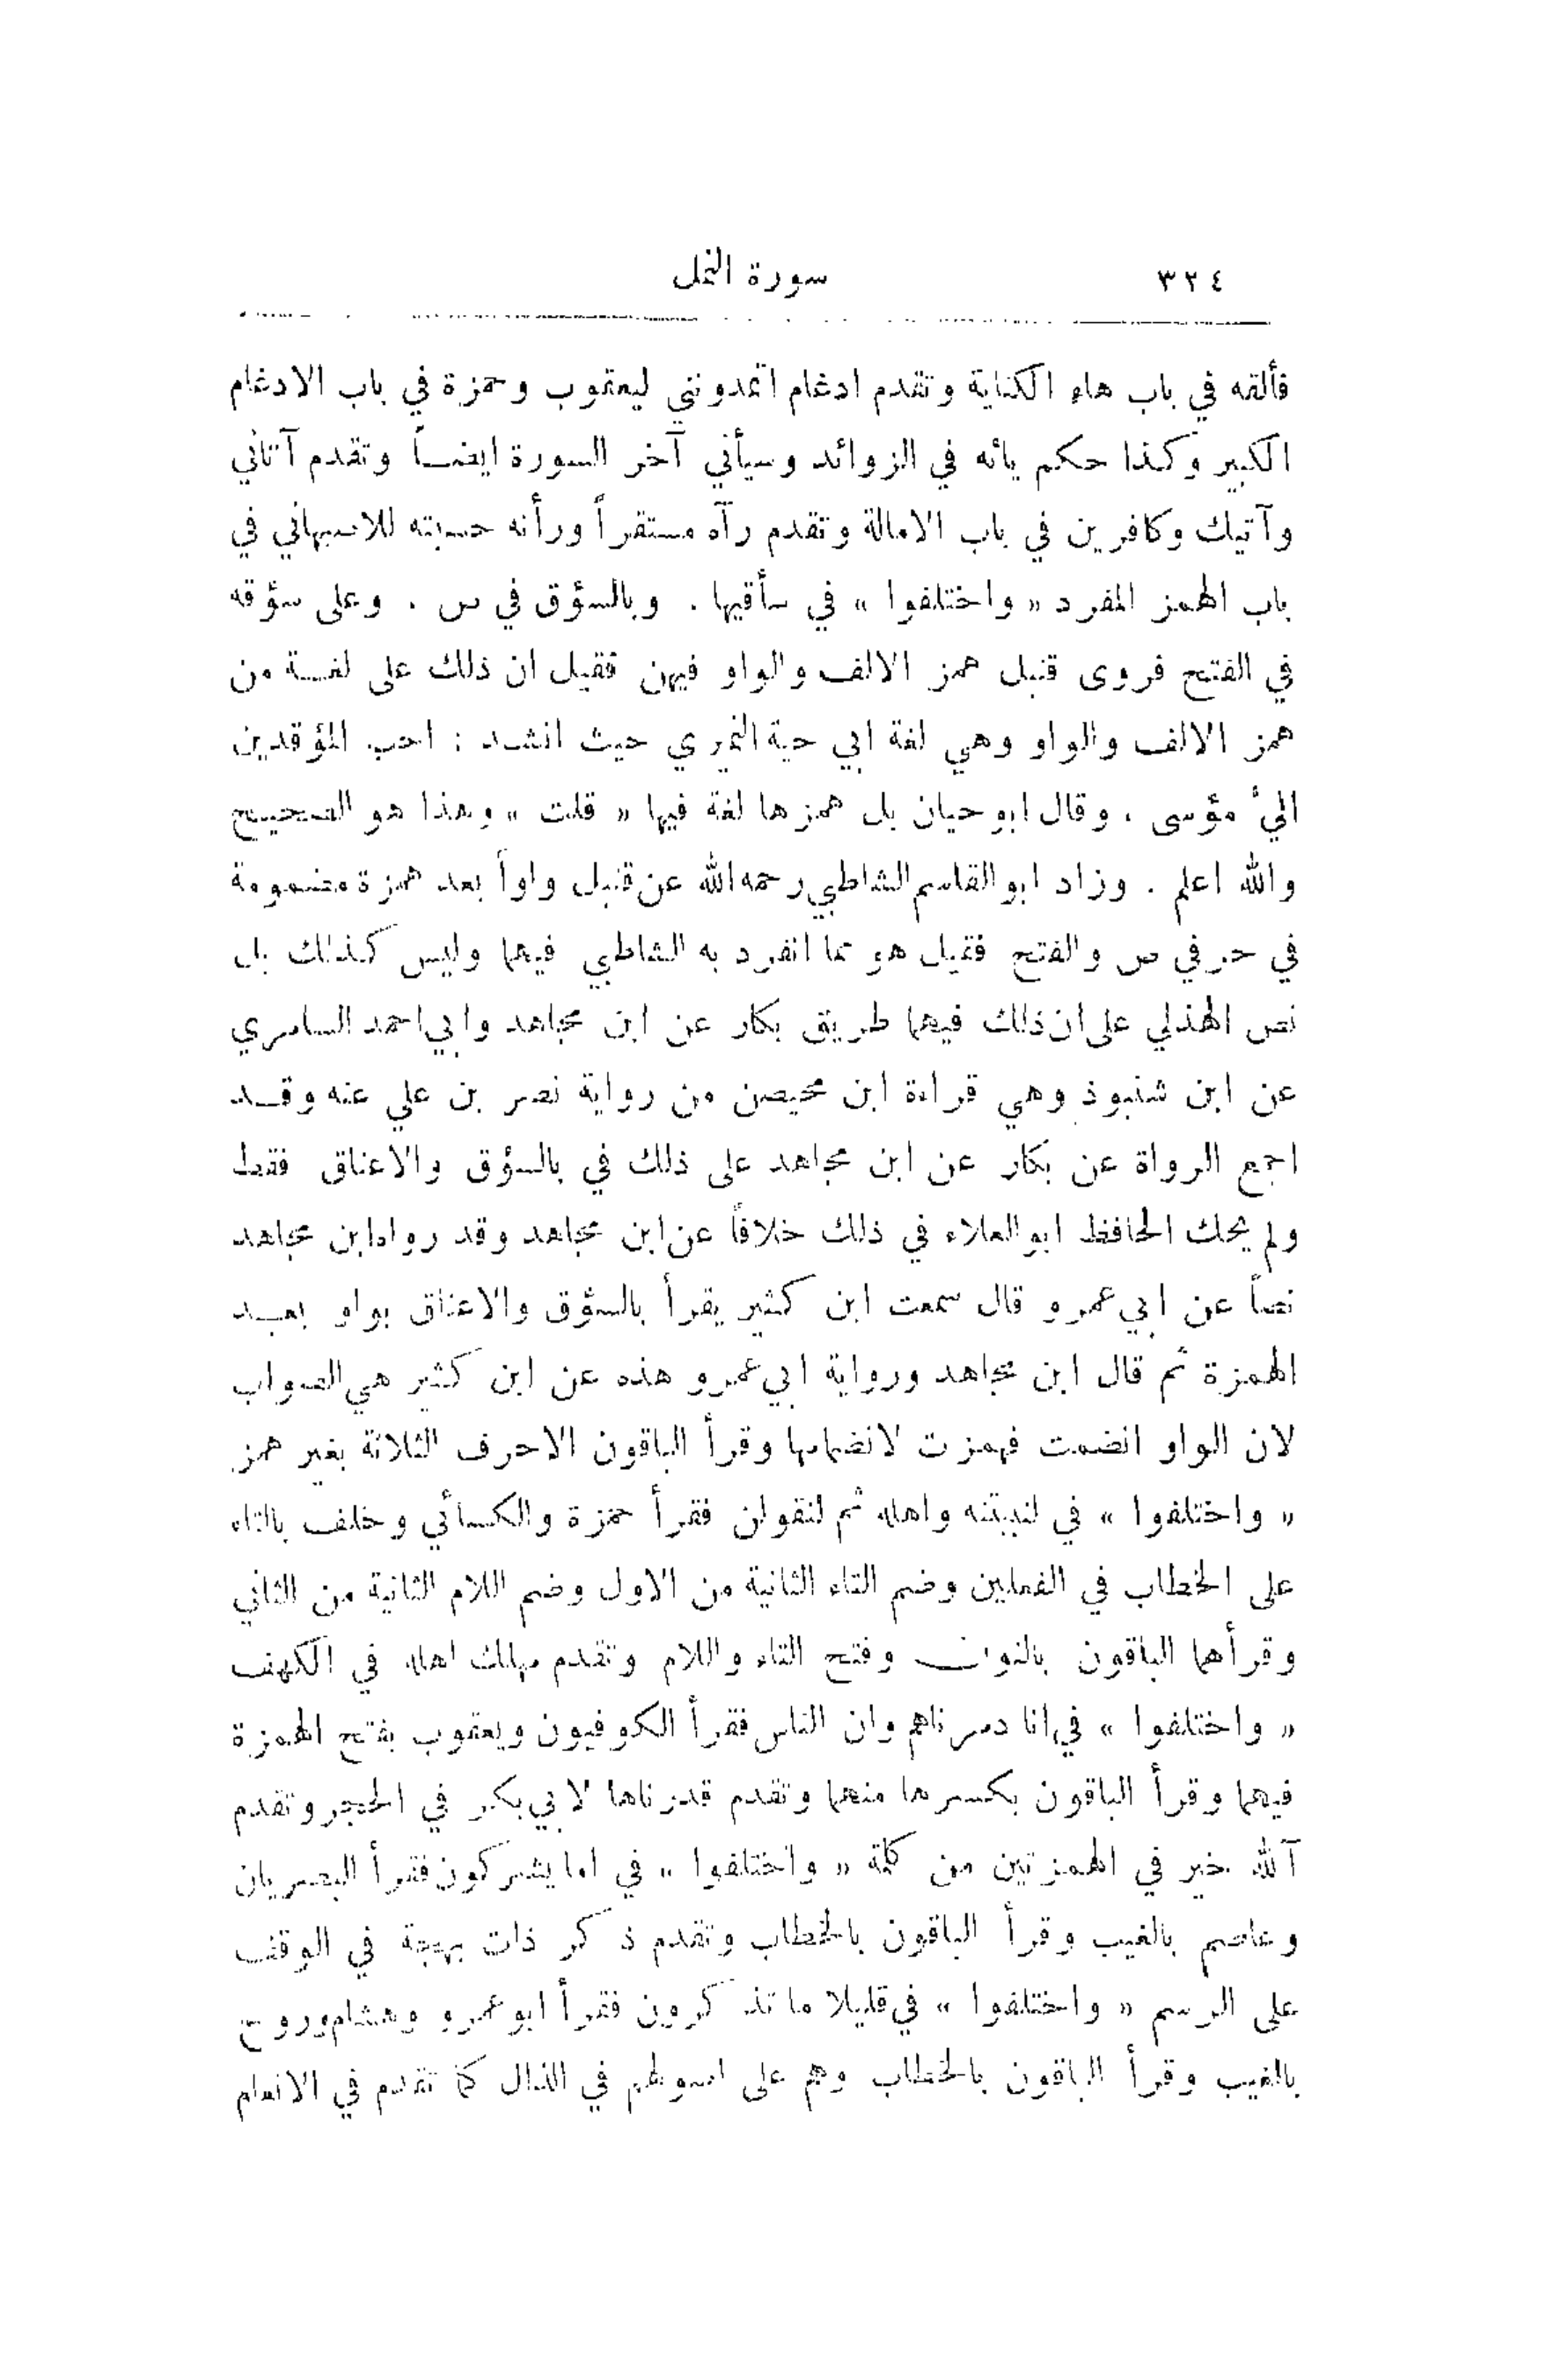 ٣٢٤ سورة النمل
فألقه في باب هاء الكناية وتقدم ادغام اتمدونني ليعقوب وحمزة في باب الادغام
الكبير وكذا حكم يائه في الزوائد وسيأتي آخر السورة ايضاً وتقدم آتاني
وآتيك وكافرين في باب الامالة وتقدم رآه مستقراً ورأته حسبته للاصبهاني في
باب الهمز المفرد « واختلفوا » في سأقيها . وبالسؤق في ص . وعلى سؤقه
في الفتح فروى قنبل همز الالف والواو فيهن فقيل ان ذلك على لغة من
همز الالف والواو وهي لغة ابي حية النميري حيث انشد : احب المؤقدين
اليّ مؤسى . وقال ابو حيان بل همزها لغة فيها « قلت » وهذا هو الصحيح
والله اعلم . وزاد ابو القاسم الشاطبي رحمه الله عن قنبل واواً بعد همزة مضمومة
في حرفي ص والفتح فقيل هو مما انفرد به الشاطبي فيهما وليس كذلك بل
نص الهذلي على ان ذلك فيهما طريق بكار عن ابن مجاهد وابي احمد السامري
عن ابن شنبوذ وهي قراءة ابن محيصن من رواية نصر بن علي عنه وقد
اجمع الرواة عن بكار عن ابن مجاهد على ذلك في بالسؤق والاعناق فقط
ولم يحك الحافظ ابو العلاء في ذلك خلافاً عن ابن مجاهد وقد رواه ابن مجاهد
نصاً عن ابي عمرو قال سمعت ابن كثير يقرأ بالسؤق والاعناق بواو بعد
الهمزة ثم قال ابن مجاهد ورواية ابي عمرو هذه عن ابن كثير هي الصواب
لان الواو انضمت فهمزت لانضمامها وقرأ الباقون الاحرف الثلاثة بغير همز
« واختلفوا » في لنبيتنه واهله ثم لنقولن فقرأ حمزة والكسائي وخلف بالتاء
على الخطاب في الفعلين وضم التاء الثانية من الاول وضم اللام الثانية من الثاني
وقرأهما الباقون بالنون وفتح التاء واللام وتقدم مهلك اهله في الكهف
« واختلفوا » في انا دمرناهم وان الناس فقرأ الكوفيون ويعقوب بفتح الهمزة
فيهما وقرأ الباقون بكسرها منهما وتقدم قدرناها لابي بكر في الحجر وتقدم
آلله خير في الهمزتين من كلمة « واختلفوا » في اما يشركون فقرأ البصريان
وعاصم بالغيب وقرأ الباقون بالخطاب وتقدم ذكر ذات بهجة في الوقف
على الرسم « واختلفوا » في قليلا ما تذكرون فقرأ ابو عمرو وهشام وروح
بالغيب وقرأ الباقون بالخطاب وهم على اصولهم في الذال كما تقدم في الانعام